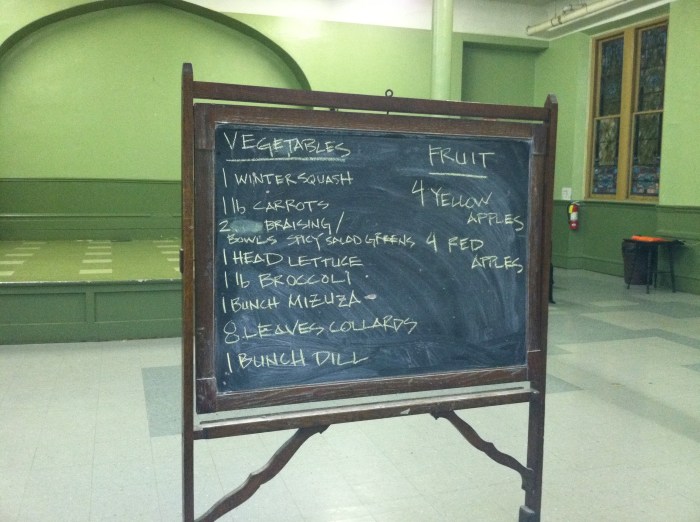 VEGETABLES
1 WINTER SQUASH
1 lb CARROTS
2 BRAISING/
BOWLS SPICY SALAD GREENS
1 HEAD LETTUCE
1 lb BROCCOLI
1 BUNCH MIZUZA
8 LEAVES COLLARDS
1 BUNCH DILL
FRUIT
4 YELLOW
APPLES
4 RED
APPLES